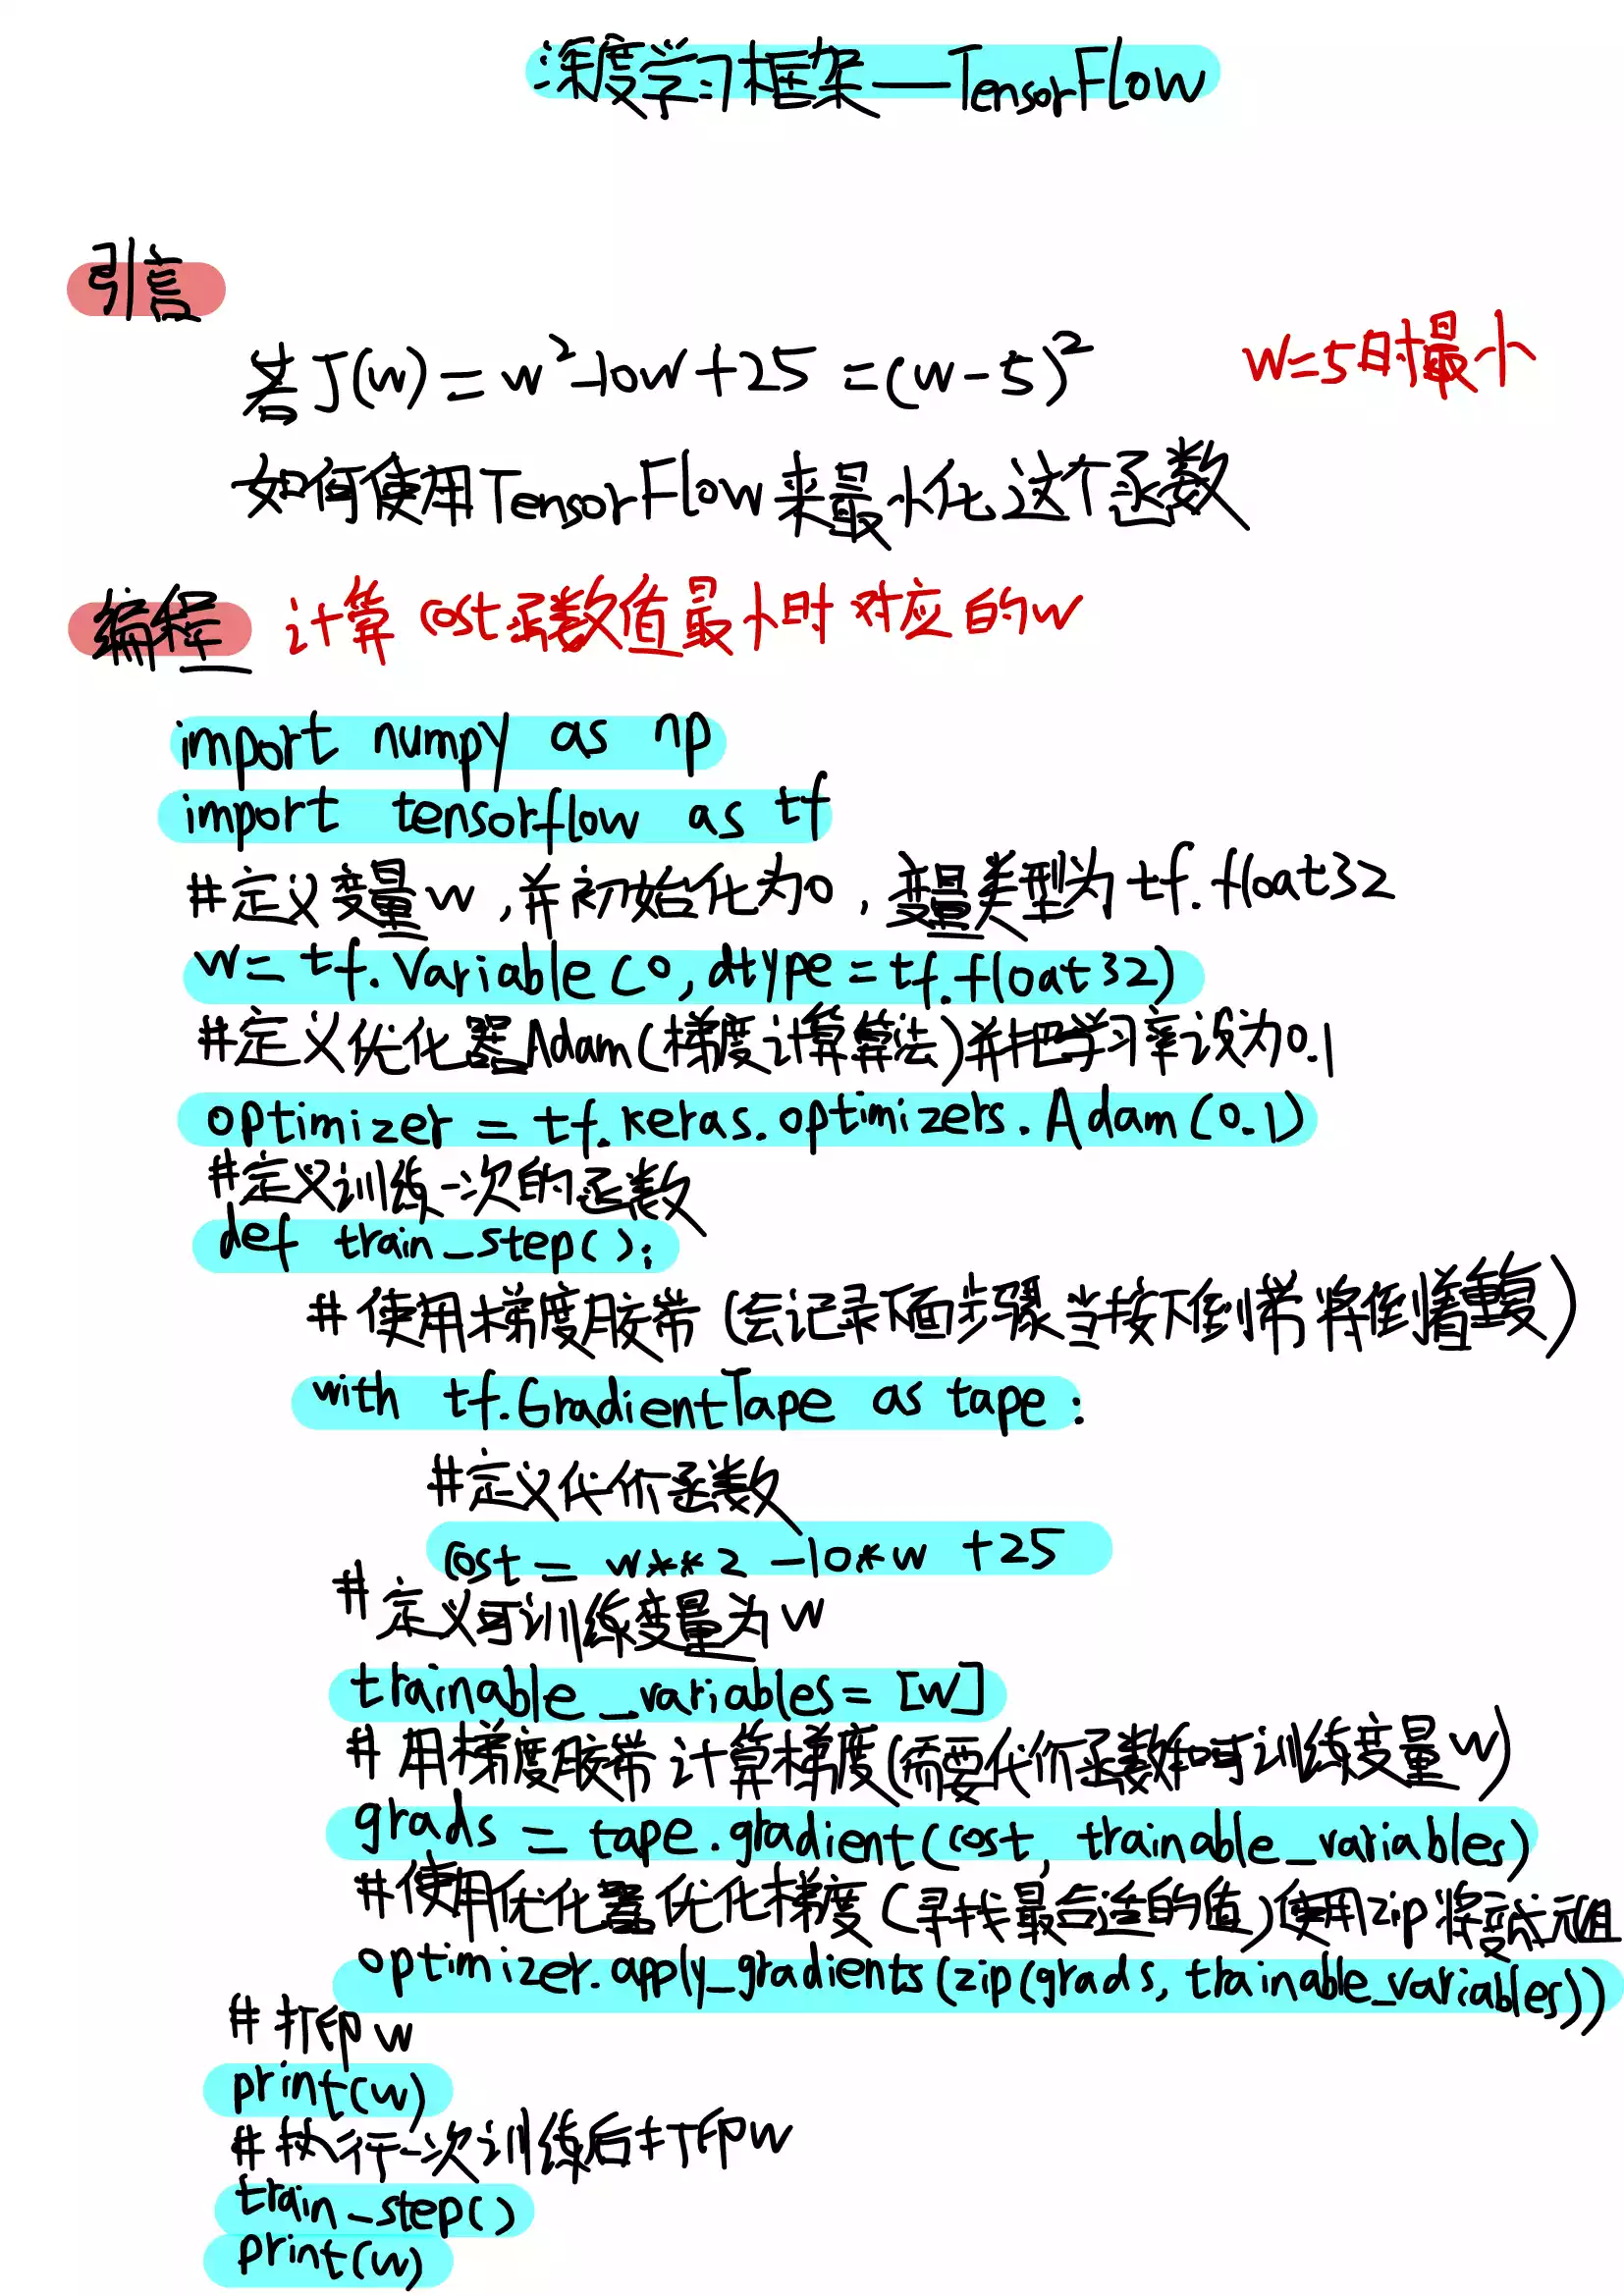 深度学习框架——TensorFlow
引言
若J(w)=w²-10w+25=(w-5)² w=5时最小
如何使用TensorFlow来最小化这个函数
编程 计算cost函数值最小时对应的w
import numpy as np
import tensorflow as tf
#定义变量w,并初始化为0,变量类型为tf.float32
w=tf.Variable(0,dtype=tf.float32)
#定义优化器Adam(梯度计算算法)并把学习率设为0.1
optimizer = tf.keras.optimizers.Adam(0.1)
#定义训练一次的函数
def train_step():
#使用梯度胶带(会记录下面步骤当按下倒带将倒着重复)
with tf.GradientTape as tape:
#定义代价函数
cost = w**2-10*w+25
#定义可训练变量为w
trainable_variables=[w]
#用梯度胶带计算梯度(需要代价函数和可训练变量w)
grads = tape.gradient(cost, trainable_variables)
#使用优化器优化梯度(寻找最合适的值)使用zip将变成元组
optimizer.apply_gradients(zip(grads, trainable_variables))
#打印w
print(w)
#执行一次训练后打印w
train_step()
print(w)